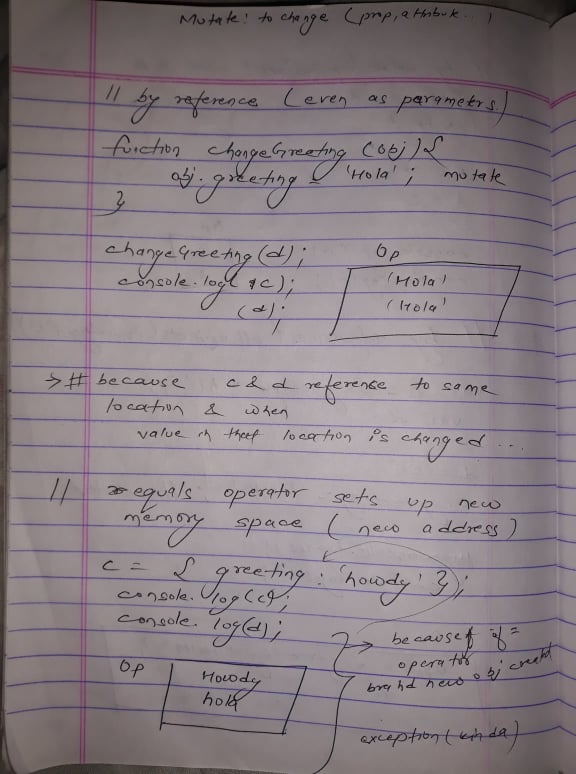 Mutate: to change (prop, attribute...)
// by reference (even as parameters)
function changeGreeting (obj) {
obj.greeting = 'Hola'; mutate
}
changeGreeting (d);
console.log( c);
(d);
Op
'Hola'
'Hola'
→ # because c & d reference to same
location & when
value in that location is changed ...
// equals operator sets up new
memory space ( new address)
c = { greeting : 'howdy' };
console.log(c);
console.log(d);
Op
Howdy
hola
because of =
operator
brand new obj created
exception (kinda)